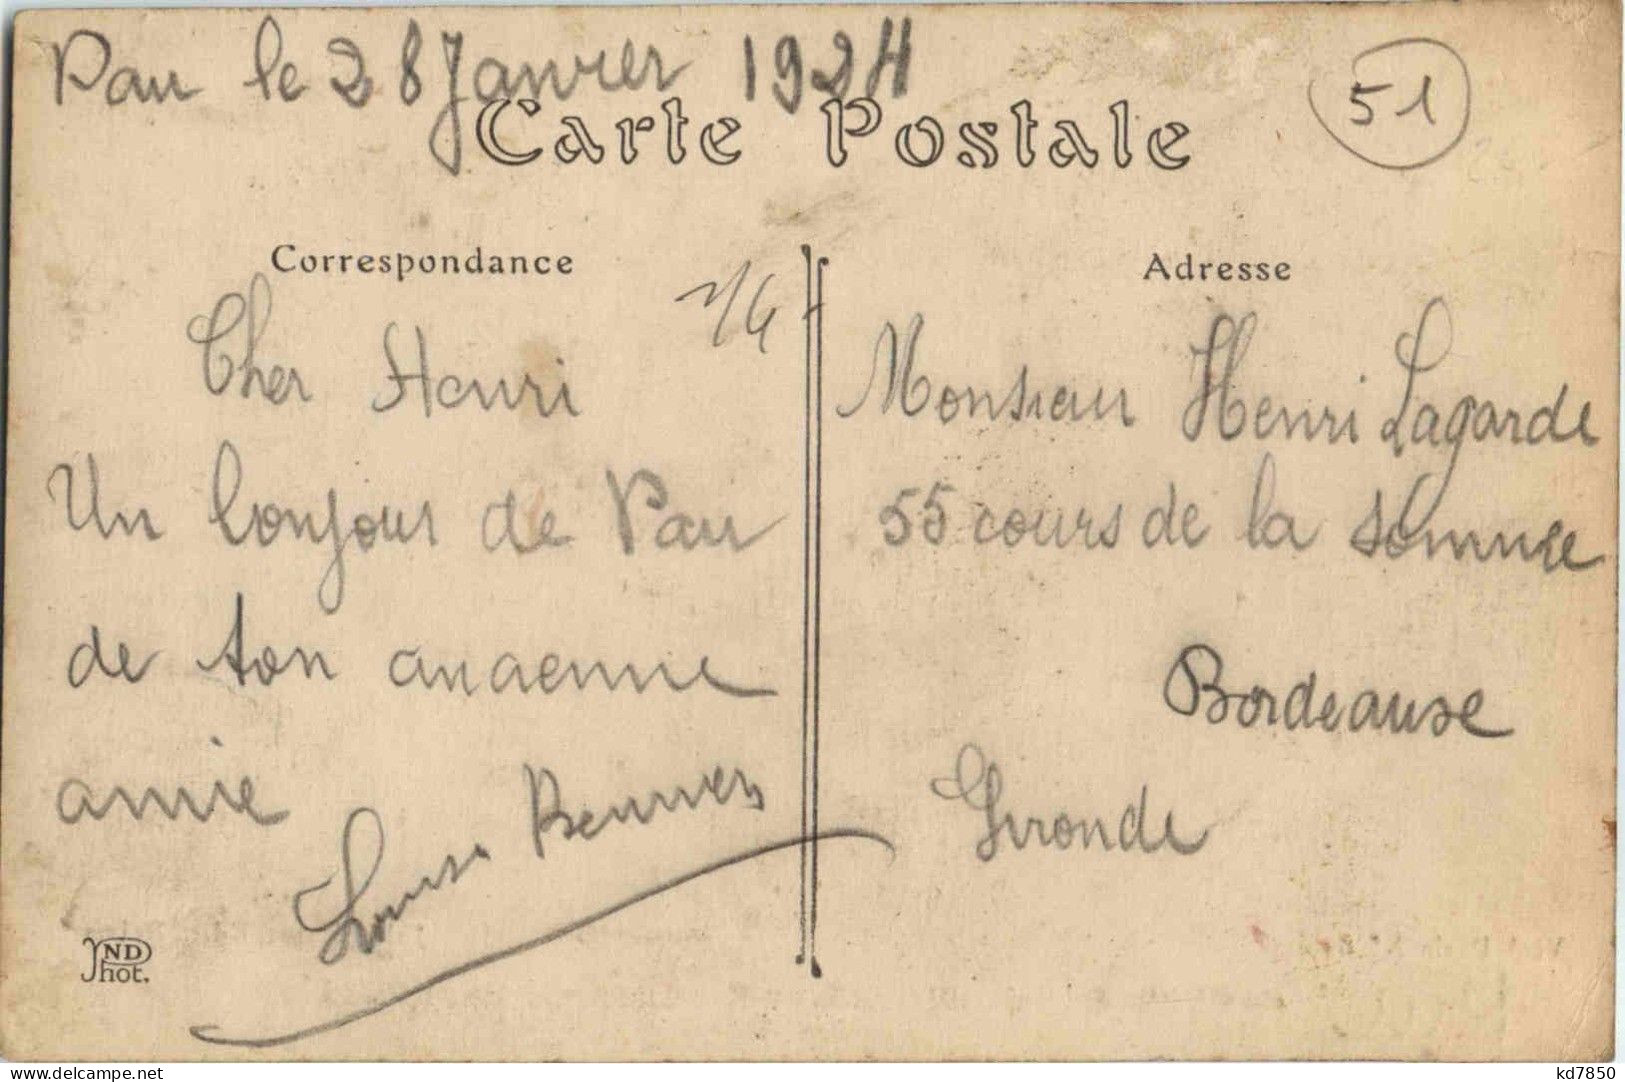 Pau le 28 Janvier 1924
51
Carte Postale
Correspondance
Adresse
Cher Henri
Un bonjour de Pau
de ton ancienne
amie
Louise
ND
Phot.
Monsieur Henri Lagarde
55 cours de la Somme
Bordeause
Gironde
delcampe.net
kd7850